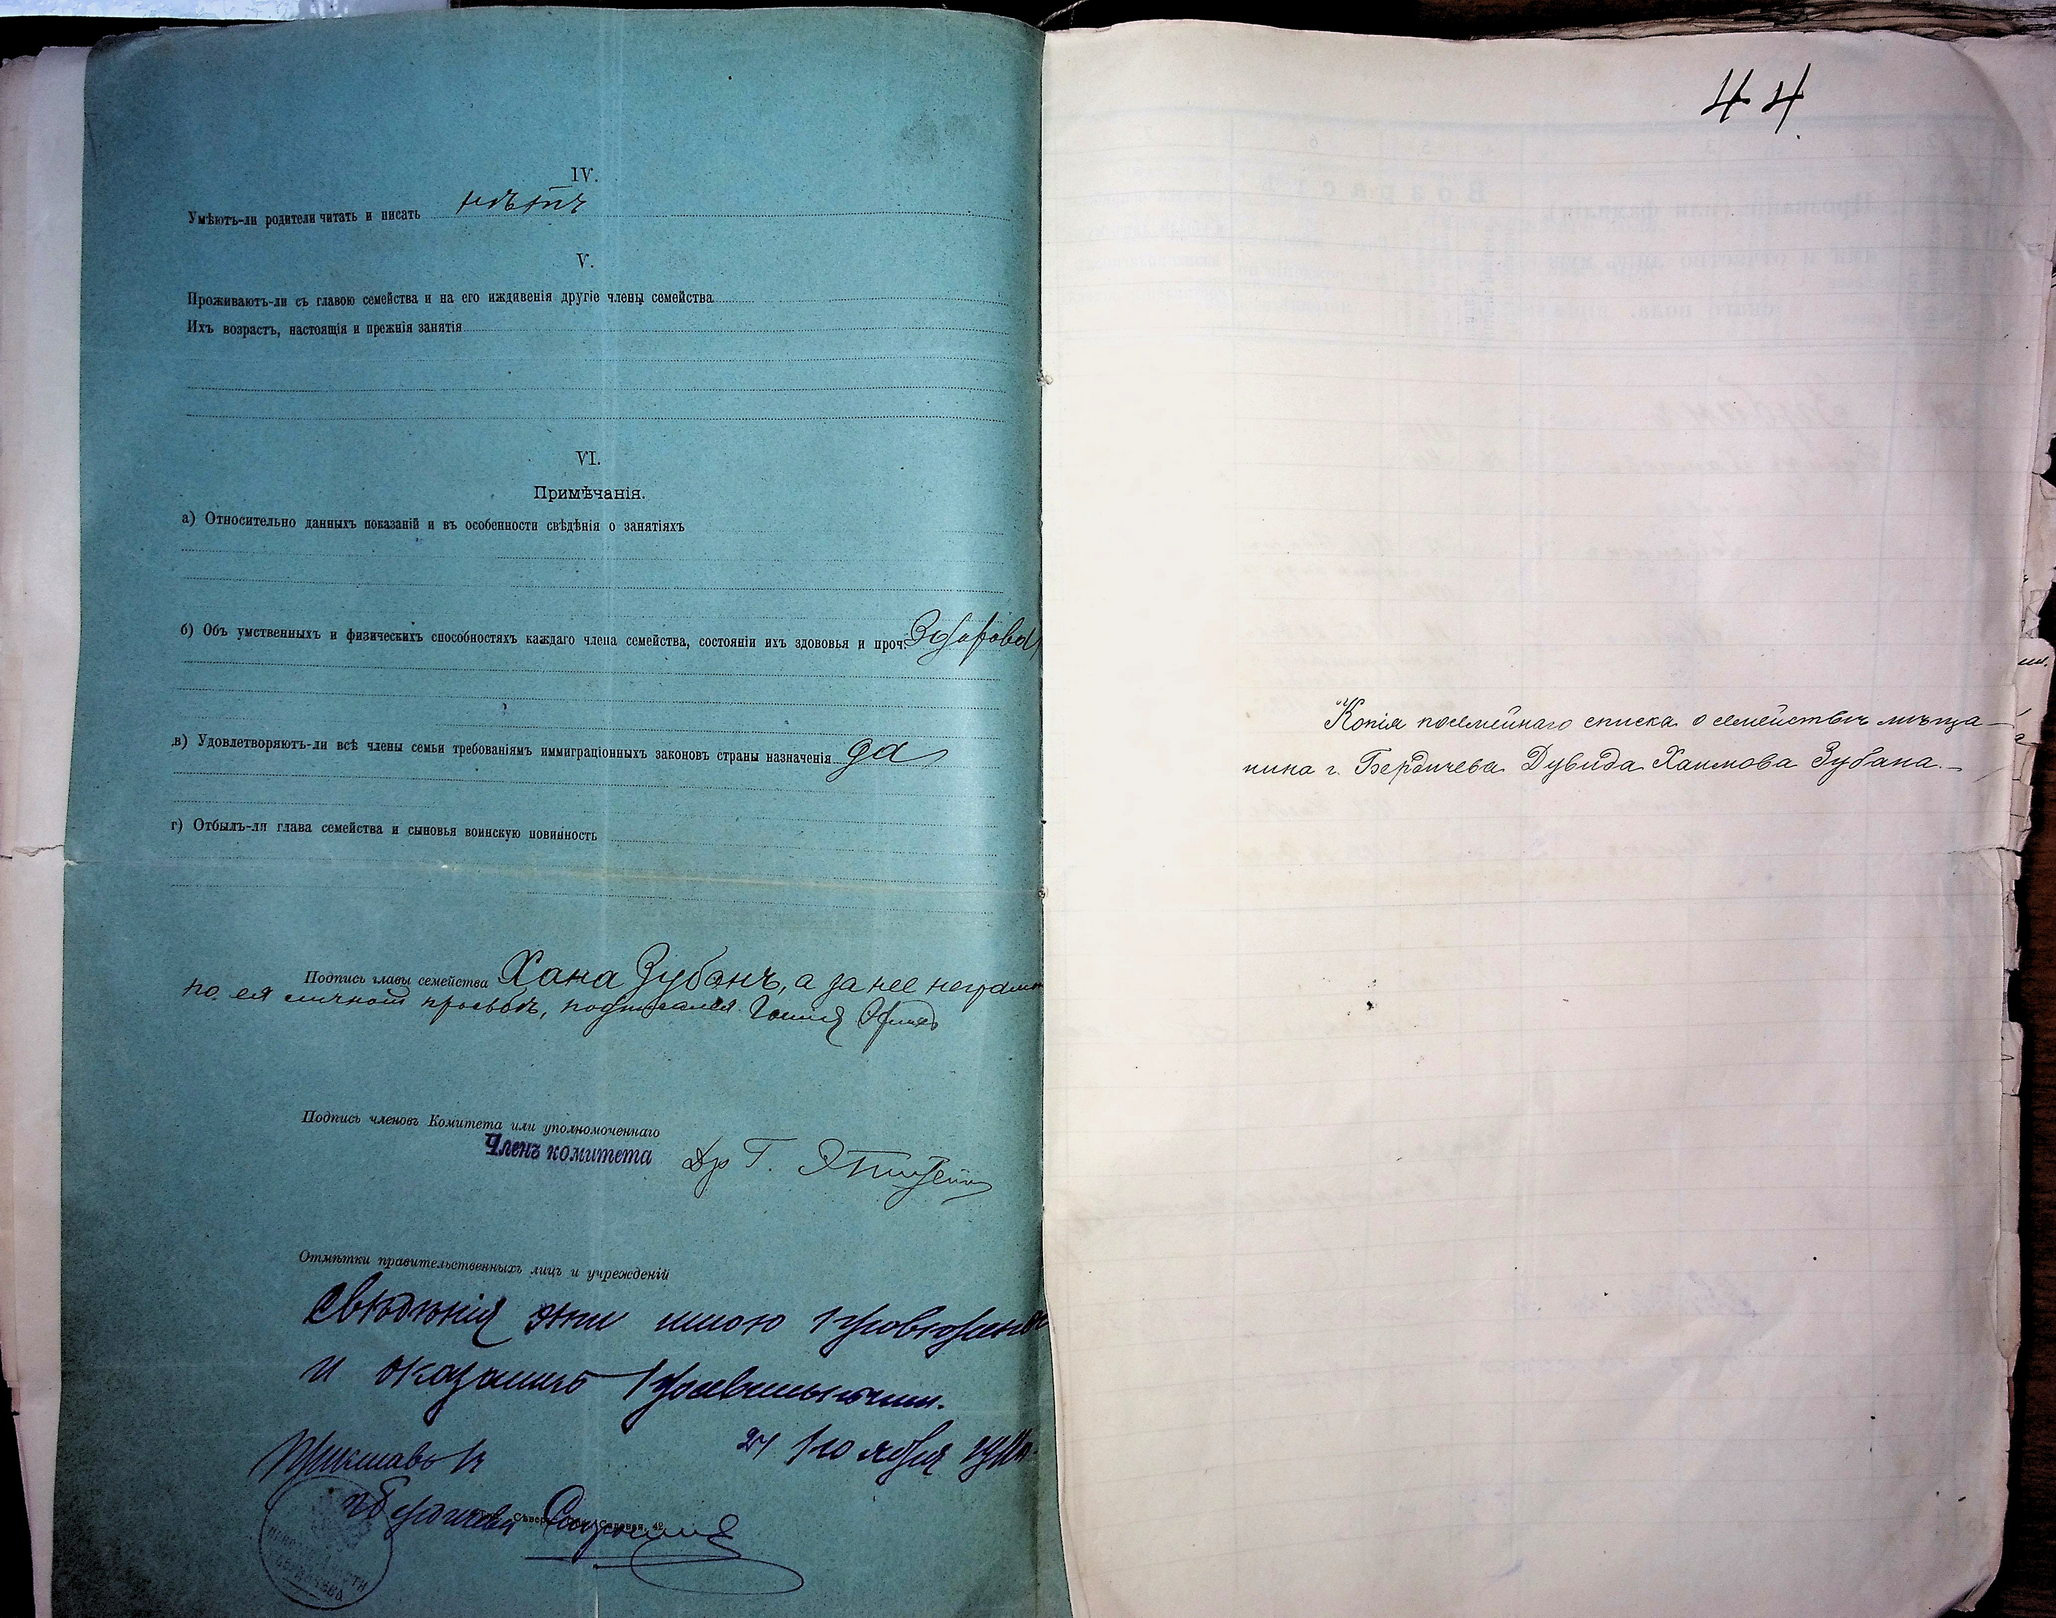 IV.
Умѣютъ-ли родители читать и писать нѣтъ
V.
Проживаютъ-ли съ главою семейства и на его иждивенія другіе члены семейства
Ихъ возрастъ, настоящія и прежнія занятія
VI.
Примѣчанія.
а) Относительно данныхъ показаній и въ особенности свѣдѣнія о занятіяхъ
б) Объ умственныхъ и физическихъ способностяхъ каждаго члена семейства, состояніи ихъ здововья и проч. Здоровы
в) Удовлетворяютъ-ли всѣ члены семьи требованіямъ иммиграціонныхъ законовъ страны назначенія да
г) Отбылъ-ли глава семейства и сыновья воинскую повинность
Подпись главы семейства Хана Зубанъ, а за нее неграмот
по ея личной просьбѣ, подписался
Подпись членовъ Комитета или уполномоченнаго
Членъ комитета Др Г.
Отмѣтки правительственныхъ лицъ и учрежденій
Свѣдѣнія эти мною провѣрены
и оказались правильными.
21 ноября
Приставъ
г. Бердичева
Садовая, 42
44
Копія посемейнаго списка о семействѣ мѣща-
нина г. Бердичева Дувида Хаимова Зубана.-